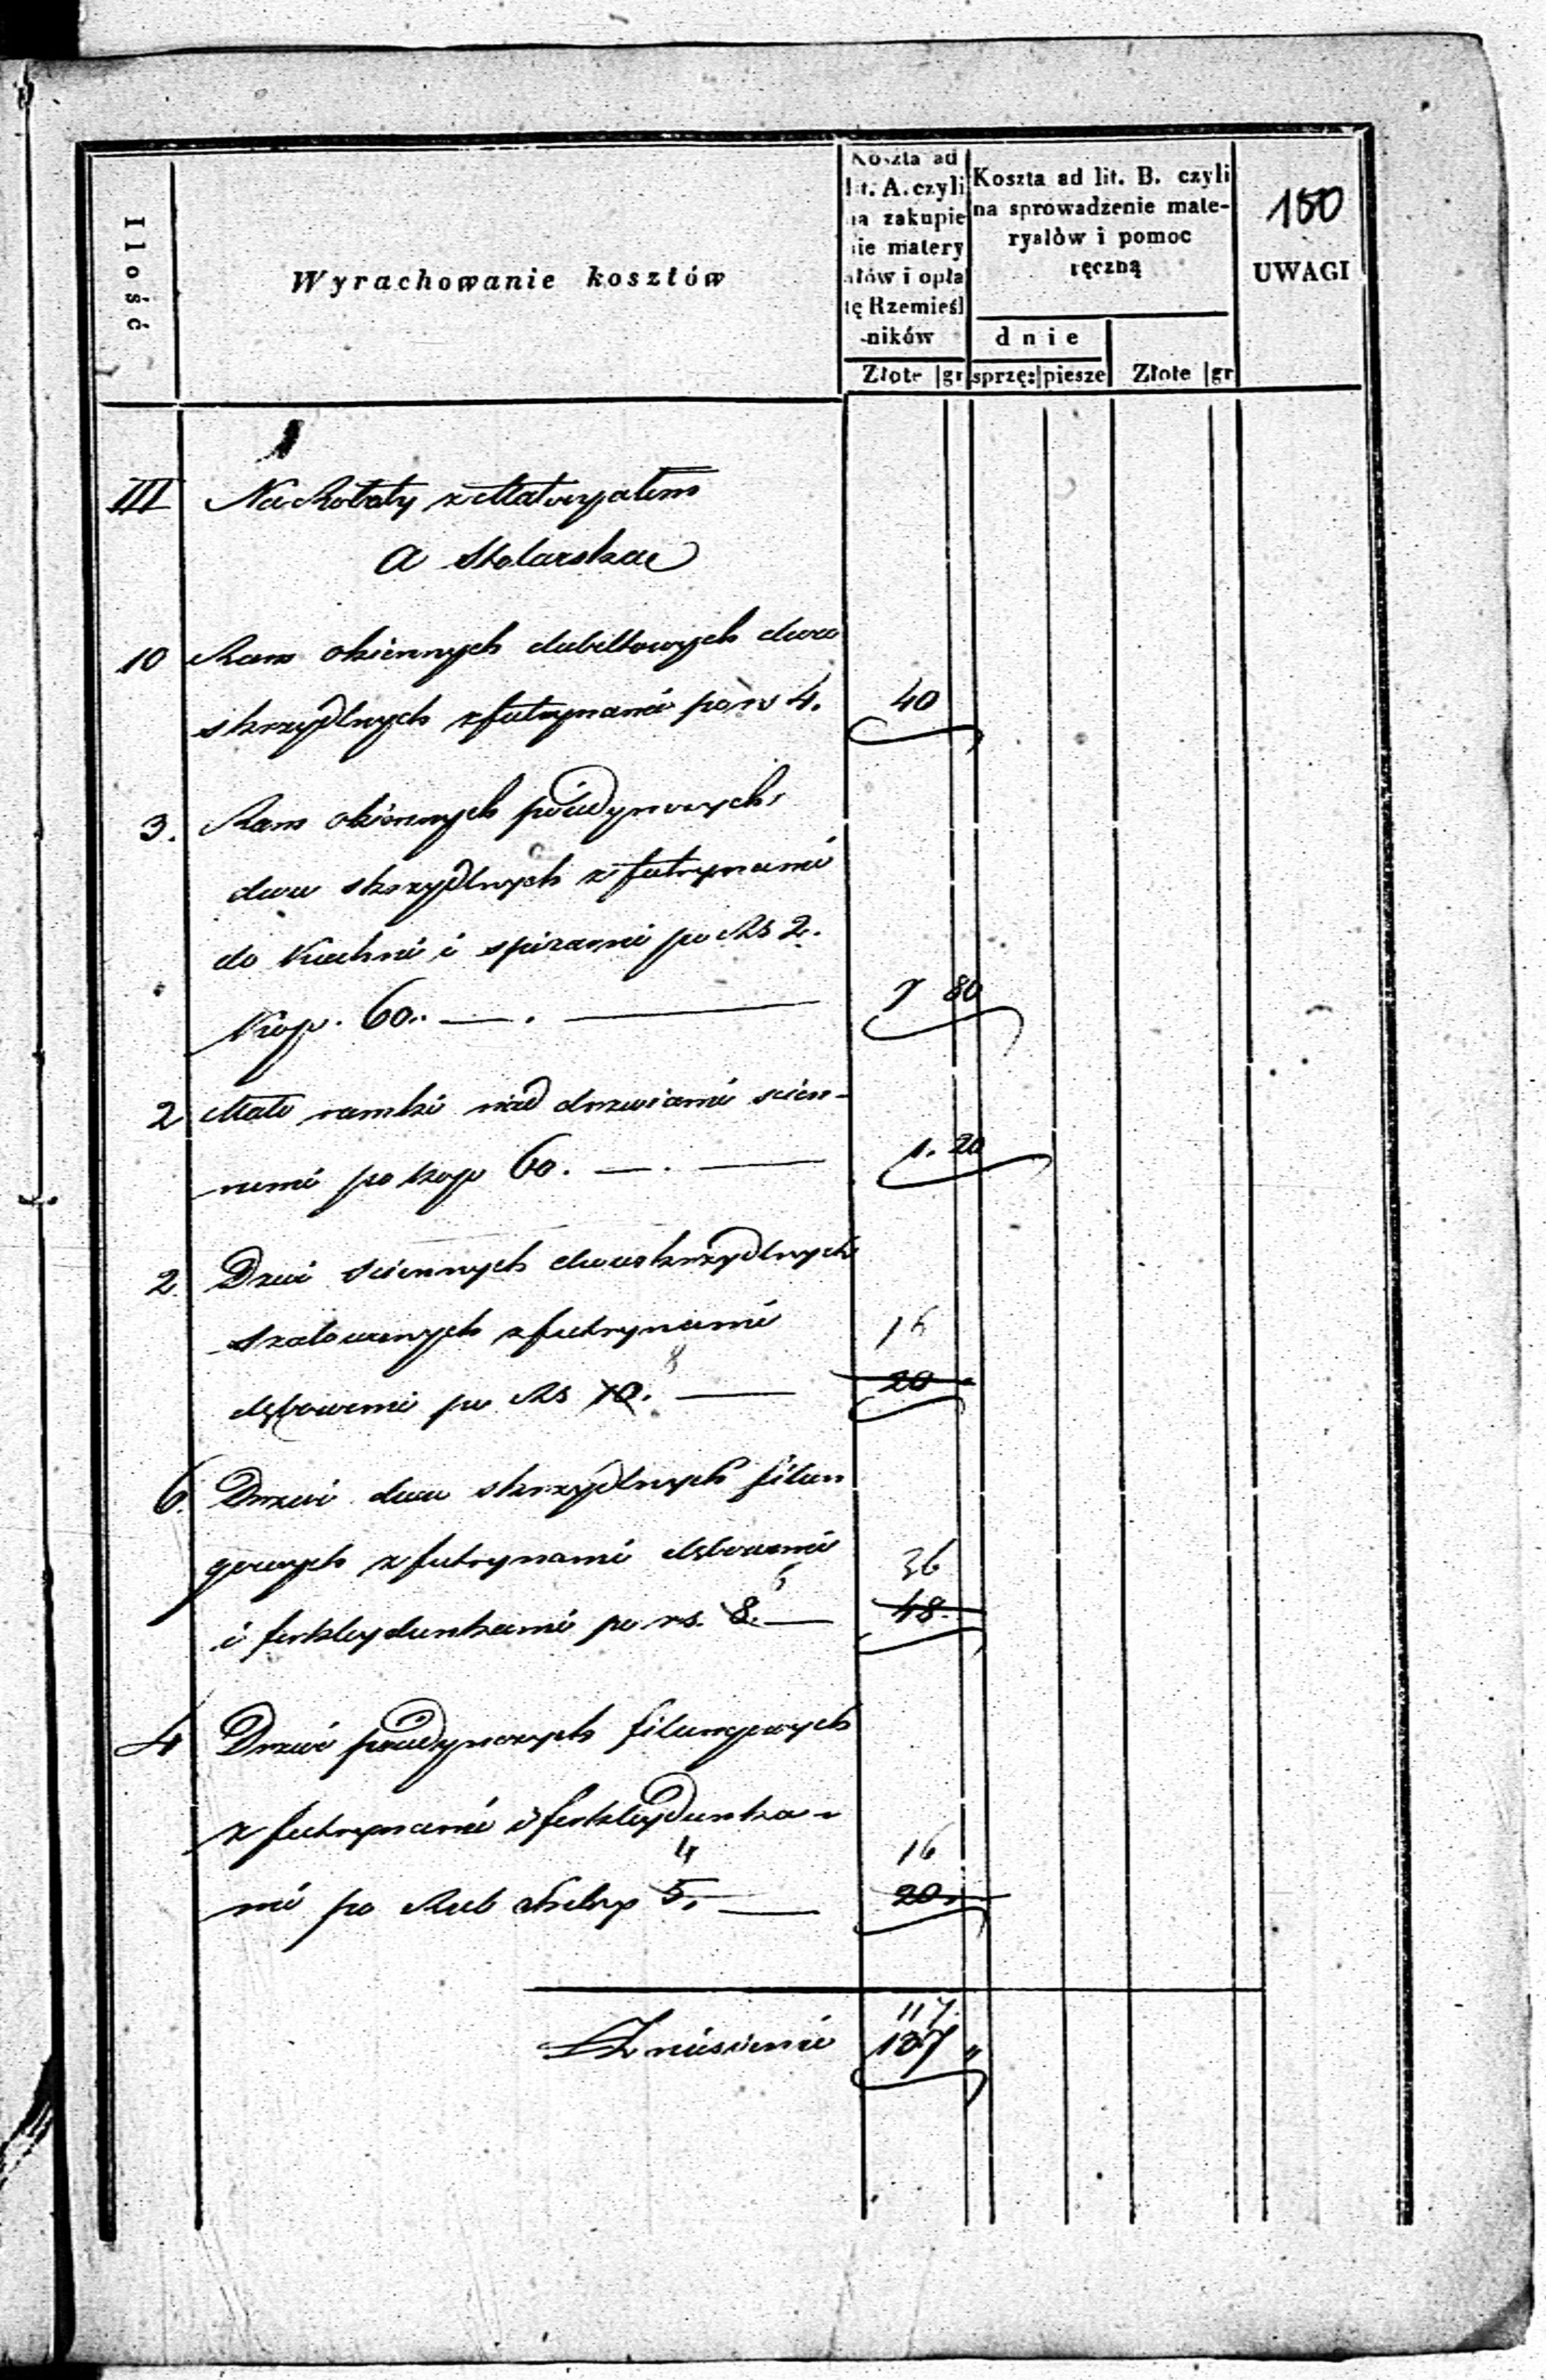 150
Ilość
Wyrachowanie kosztów
Koszta ad
lit. A. czyli
na zakupie
nie matery
ałów i opła
tę Rzemieśl
-ników
Koszta ad lit. B. czyli
na sprowadzenie mate-
ryałów i pomoc
ręczną
dnie
UWAGI
Złote gr sprzę: piesze Złote gr
III Na Roboty z Materyałem
a Stolarskie
10 Ram okiennych dubeltowych dwu
skrzydlnych z futrynami po rs 4. 40
3. Ram okiennych pojedynowych
dwu skrzydlnych z futrynami
do kuchni i spizarni po Rs 2.
Kop. 60. 7 80
2 Małe ramki nad drzwiami scien-
nemi po kop 60. 1. 20
2 Drzwi sciennych dwuskrzydlnych
szalowanych z futrynami 16
dębowemi po Rs 10. 8 20
6. Drzwi dwu skrzydlnych filun
gowych z futrynami dębowemi 36
i ferkleydunkami po rs. 8. 6 48.
4 Drzwi pojedynowych filungowych
z futrynami i ferkleydunka- 16
mi po Rub Srebr 5. 4 20
117.
Zniesienie 137 "